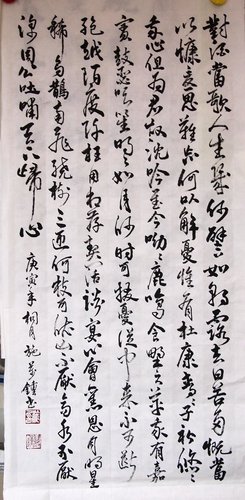 對酒當歌人生幾何譬如朝露去日苦多慨當
以慷憂思難忘何以解憂惟有杜康青青子衿悠悠
我心但為君故沈吟至今呦呦鹿鳴食野之苹我有嘉
賓鼓瑟吹笙明明如月何時可掇憂從中來不可斷
絕越陌度阡枉用相存契闊談宴心念舊恩月明星
稀烏鵲南飛繞樹三匝何枝可依山不厭高水不厭
深周公吐哺天下歸心
庚寅年桐月施